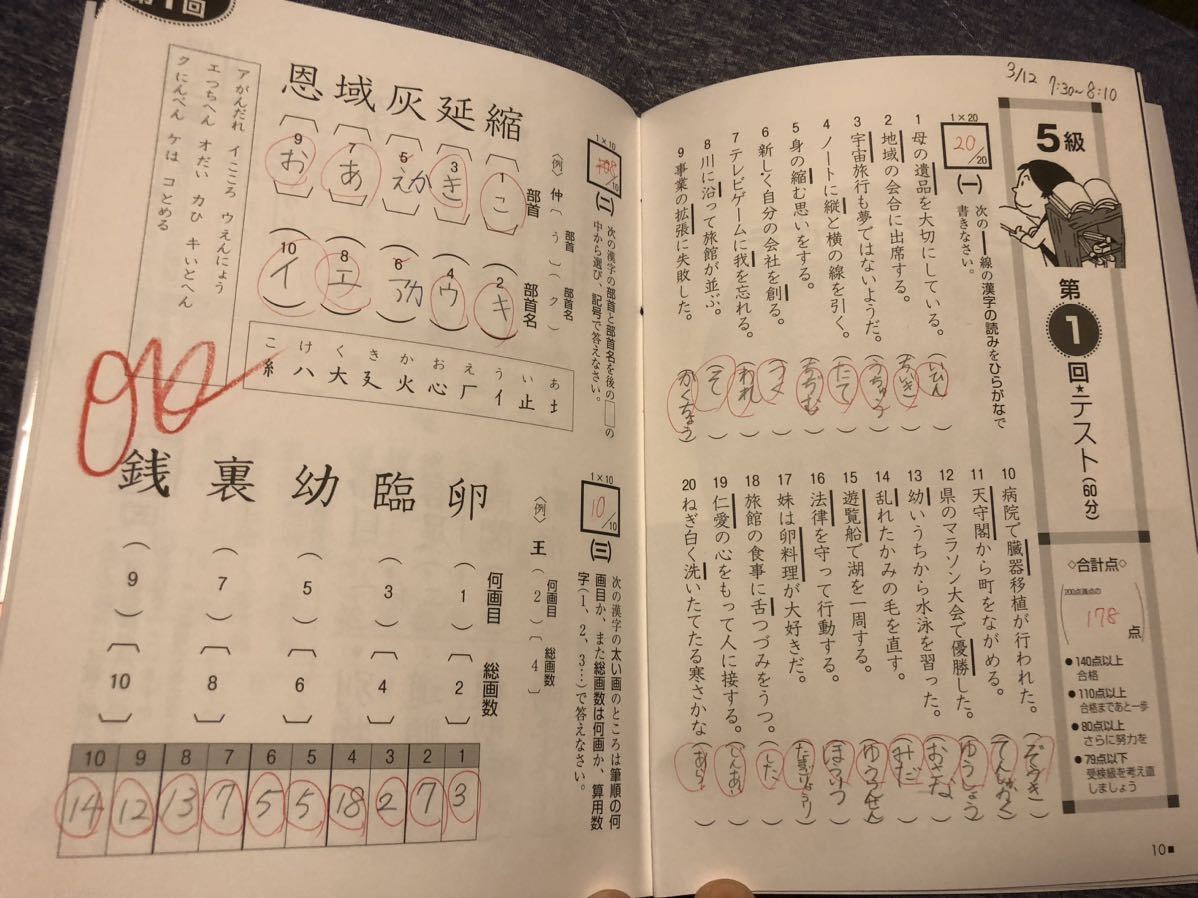 3/12 7:30~8:10
5級
第1回★テスト(60分)
◇合計点◇
200点満点の
178点
●140点以上
合格
●110点以上
合格まであと一歩
●80点以上
さらに努力を
●79点以下
受検級を考え直
しましょう
10■
1×20
20/20
(一) 次の━線の漢字の読みをひらがなで
書きなさい。
1 母の遺品を大切にしている。(いひん)
2 地域の会合に出席する。(ちいき)
3 宇宙旅行も夢ではないようだ。(うちゅう)
4 ノートに縦と横の線を引く。(たて)
5 身の縮む思いをする。(ちぢむ)
6 新しく自分の会社を創る。(つく)
7 テレビゲームに我を忘れる。(われ)
8 川に沿って旅館が並ぶ。(そ)
9 事業の拡張に失敗した。(かくちょう)
10 病院で臓器移植が行われた。(ぞうき)
11 天守閣から町をながめる。(てんしゅかく)
12 県のマラソン大会で優勝した。(ゆうしょう)
13 幼いうちから水泳を習った。(おさな)
14 乱れたかみの毛を直す。(みだ)
15 遊覧船で湖を一周する。(ゆうらんせん)
16 法律を守って行動する。(ほうりつ)
17 妹は卵料理が大好きだ。(たまごりょうり)
18 旅館の食事に舌つづみをうつ。(した)
19 仁愛の心をもって人に接する。(じんあい)
20 ねぎ白く洗いたてたる寒さかな(あら)
第1回
1×10
/10
(二) 次の漢字の部首と部首名を後の□の
中から選び、記号で答えなさい。
部首 部首名
〈例〉仲〔う〕(ク)
部首 部首名
縮〔1 こ〕(2 キ)
延〔3 き〕(4 ウ)
灰〔5 か〕(6 カ)
域〔7 あ〕(8 エ)
恩〔9 お〕(10 イ)
あ 土
い 止
う イ
え 厂
お 心
か 火
き 廴
く 大
け ハ
こ 糹
ア がんだれ イ こころ ウ えんにょう
エ つちへん オ だい カ ひ キ いとへん
ク にんべん ケ は コ とめる
1×10
10/10
(三) 次の漢字の太い画のところは筆順の何
画目か、また総画数は何画か、算用数
字(1、2、3…)で答えなさい。
何画目 総画数
〈例〉王(2)〔4〕
何画目 総画数
卵(1)〔2〕
臨(3)〔4〕
幼(5)〔6〕
裏(7)〔8〕
銭(9)〔10〕
10 9 8 7 6 5 4 3 2 1
14 12 13 7 5 5 18 2 7 3